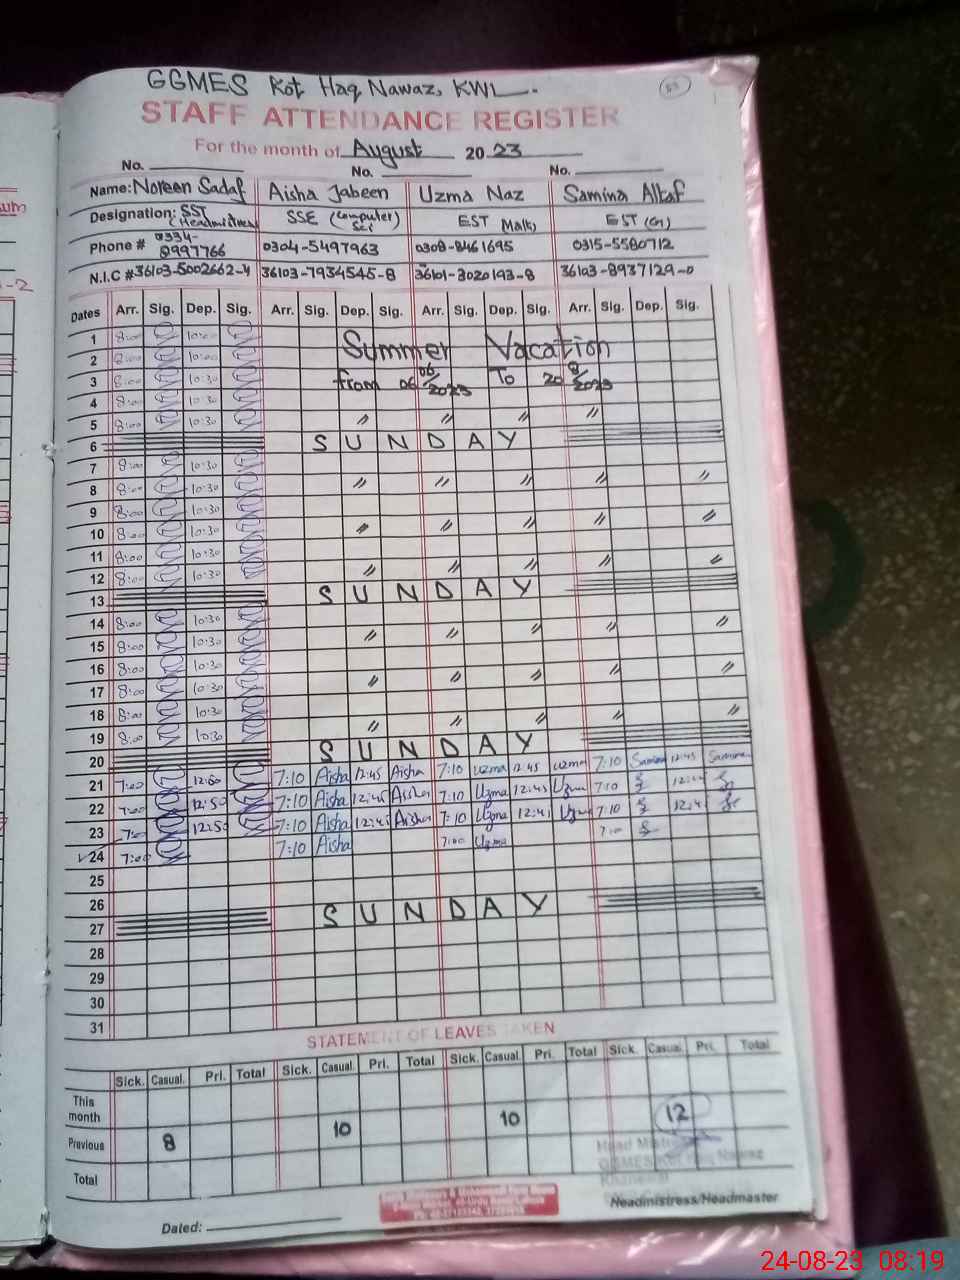 GGMES Kot Haq Nawaz, KWL.
53
STAFF ATTENDANCE REGISTER
For the month of August 2023
No. No. No.
Name: Noreen Sadaf Aisha Jabeen Uzma Naz Samina Altaf
Designation: SST (Headmistress) SSE (Computer Sci) EST Math, EST (G)
Phone # 0334-8997766 0304-5497963 0308-8461695 0315-5580712
N.I.C # 36103-5002662-4 36103-7934545-8 36101-3020193-8 36103-8937129-0
Dates Arr. Sig. Dep. Sig. Arr. Sig. Dep. Sig. Arr. Sig. Dep. Sig. Arr. Sig. Dep. Sig.
1 8:00 10:00 Summer Vacation
2 8:00 10:00
3 8:00 10:30 from 06/06/2023 To 20/8/2023
4 8:00 10:30
5 8:00 10:30 〃 〃 〃 〃
6 SUNDAY
7 8:00 10:30
8 8:00 10:30 〃 〃 〃 〃 〃
9 8:00 10:30
10 8:00 10:30 〃 〃 〃 〃 〃
11 8:00 10:30
12 8:00 10:30 〃 〃 〃 〃 〃
13 SUNDAY
14 8:00 10:30
15 8:00 10:30 〃 〃 〃 〃 〃
16 8:00 10:30
17 8:00 10:30 〃 〃 〃 〃 〃
18 8:00 10:30
19 8:00 10:30 〃 〃 〃 〃 〃
20 SUNDAY
21 7:00 12:50 7:10 Aisha 12:45 Aisha 7:10 Uzma 12:45 Uzma 7:10 Samina 12:45 Samina
22 7:00 12:50 7:10 Aisha 12:45 Aisha 7:10 Uzma 12:45 Uzma 7:10 12:45
23 7:00 12:50 7:10 Aisha 12:45 Aisha 7:10 Uzma 12:45 Uzma 7:10 12:45
24 7:00 7:10 Aisha 7:00 Uzma 7:10
25
26
27 SUNDAY
28
29
30
31
STATEMENT OF LEAVES TAKEN
Sick. Casual. Pri. Total Sick. Casual. Pri. Total Sick. Casual. Pri. Total Sick. Casual. Pri. Total
This month
Previous 8 10 10 12
Total
Head Mistress
GGMES Kot Haq Nawaz
Khanewal
Headmistress/Headmaster
Dated:
24-08-23 08:19